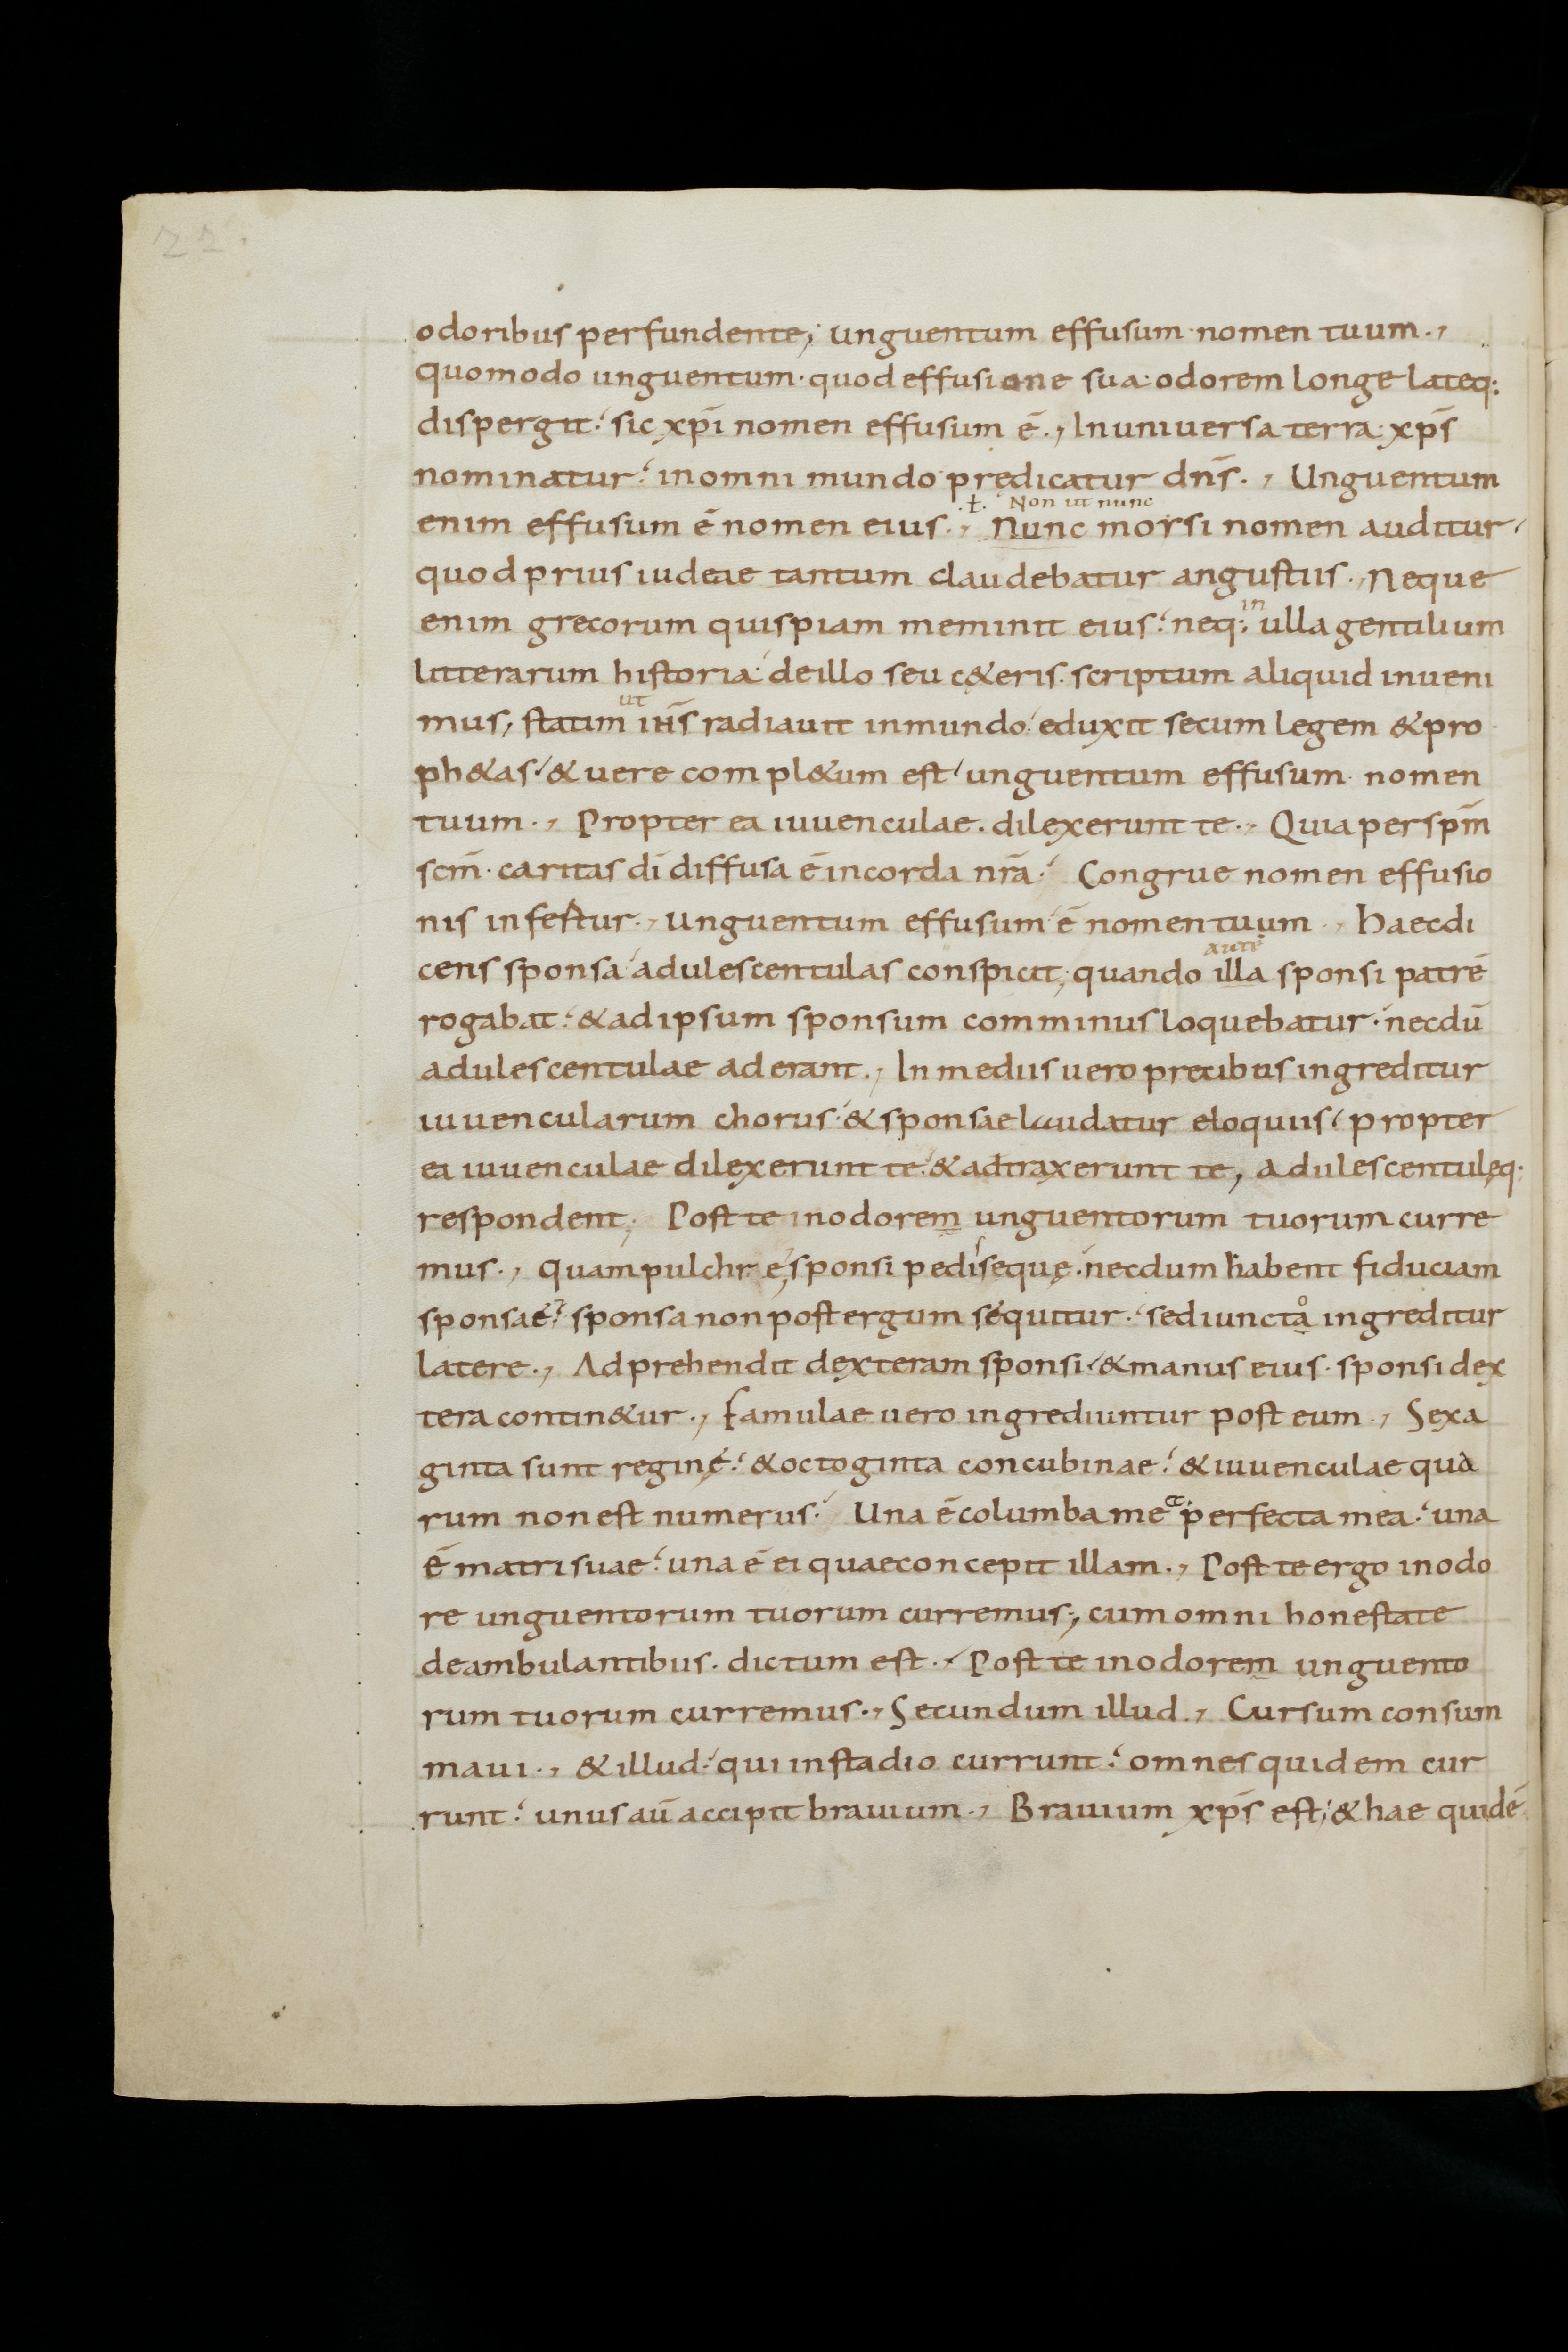 22.
odoribus perfundente; unguentum effusum nomen tuum.,
quomodo unguentum. quod effusione sua. odorem longe lateq:
dispergit. sic xp̄i nomen effusum ē., In uniuersa terra. xp̄s
nominatur. in omni mundo prędicatur dn̄s., Unguentum
.ł. Non ut nunc
enim effusum ē nomen eius., Nunc morsi nomen auditur.
quod prius iudeae tantum claudebatur angustiis., Neque
in
enim grecorum quispiam meminit eius. neq: ulla gentilium
litterarum historia. de illo seu c&eris. scriptum aliquid inueni
ut
mus, statim ih̄s radiauit in mundo. eduxit secum legem & pro
ph&as. & uere compl&um est. unguentum effusum nomen
tuum., Propter ea iuuenculae. dilexerunt te., Quia per sp̄m
sc̄m. caritas dī diffusa ē in corda nr̄a. Congrue nomen effusio
nis infertur., unguentum effusum ē nomen tuum., Haec di
autē
cens sponsa. adulescentulas conspicit; quando illa sponsi patrē
rogabat. & ad ipsum sponsum comminus loquebatur. necdū
adulescentulae aderant., In mediis uero precibus ingreditur
iuuencularum chorus. & sponsae laudatur eloquiis. propter
ea iuuenculae dilexerunt te. & adtraxerunt te, adulescentulęq.
respondent; Post te in odorem unguentorum tuorum curre
mus., quam pulchrę sponsi pedisequę. necdum habent fiduciam
sponsae. sponsa non post ergum sequitur. sed iuncta ingreditur
o
latere., Adprehendit dexteram sponsi. & manus eius. sponsi dex
tera contin&ur., Famulae uero ingrediuntur post eum., Sexa
ginta sunt reginę. & octoginta concubinae. & iuuenculae qua
rum non est numerus. Una ē columba mea. perfecta mea. una
ē matri suae. una ē ei quae concepit illam., Post te ergo in odo
re unguentorum tuorum curremus; cum omni honestate
deambulantibus. dictum est., Post te in odorem unguento
rum tuorum curremus., Secundum illud., Cursum consum
maui., & illud. qui in stadio currunt. omnes quidem cur
runt. unus aū accipit brauium., Brauium xp̄s est; & hae quidē